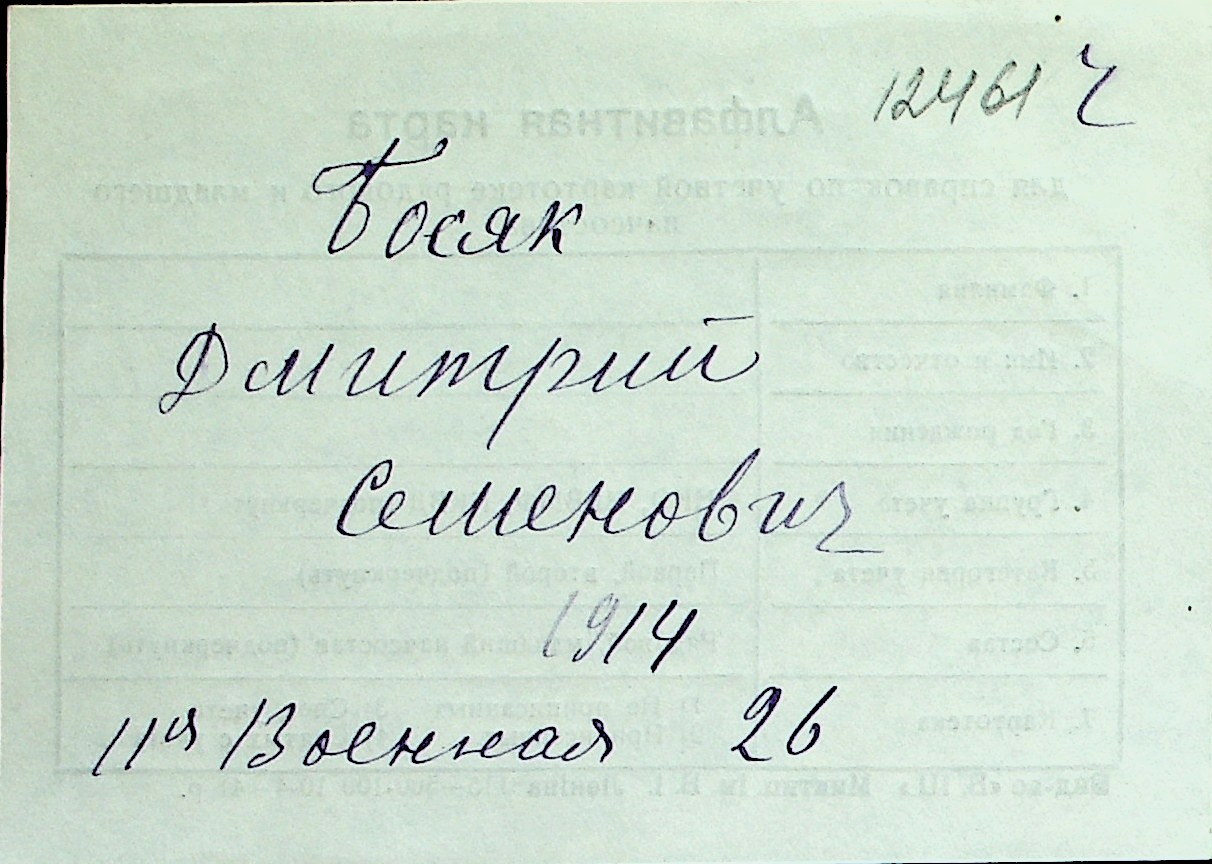 12461 Ч
Босяк
Дмитрий
Семенович
1914
11ая Военная 26